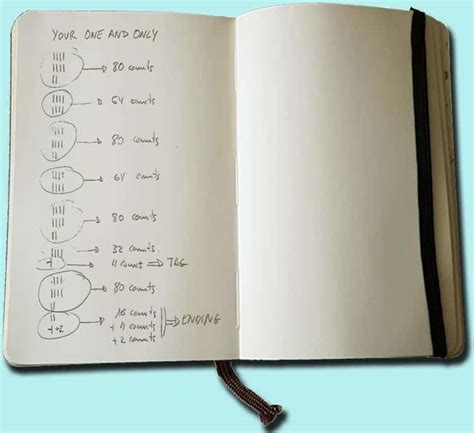 YOUR ONE AND ONLY
80 counts
64 counts
80 counts
64 counts
80 counts
32 counts
4 count => TAG
80 counts
16 counts
+ 4 counts => ENDING
+2 + 2 counts